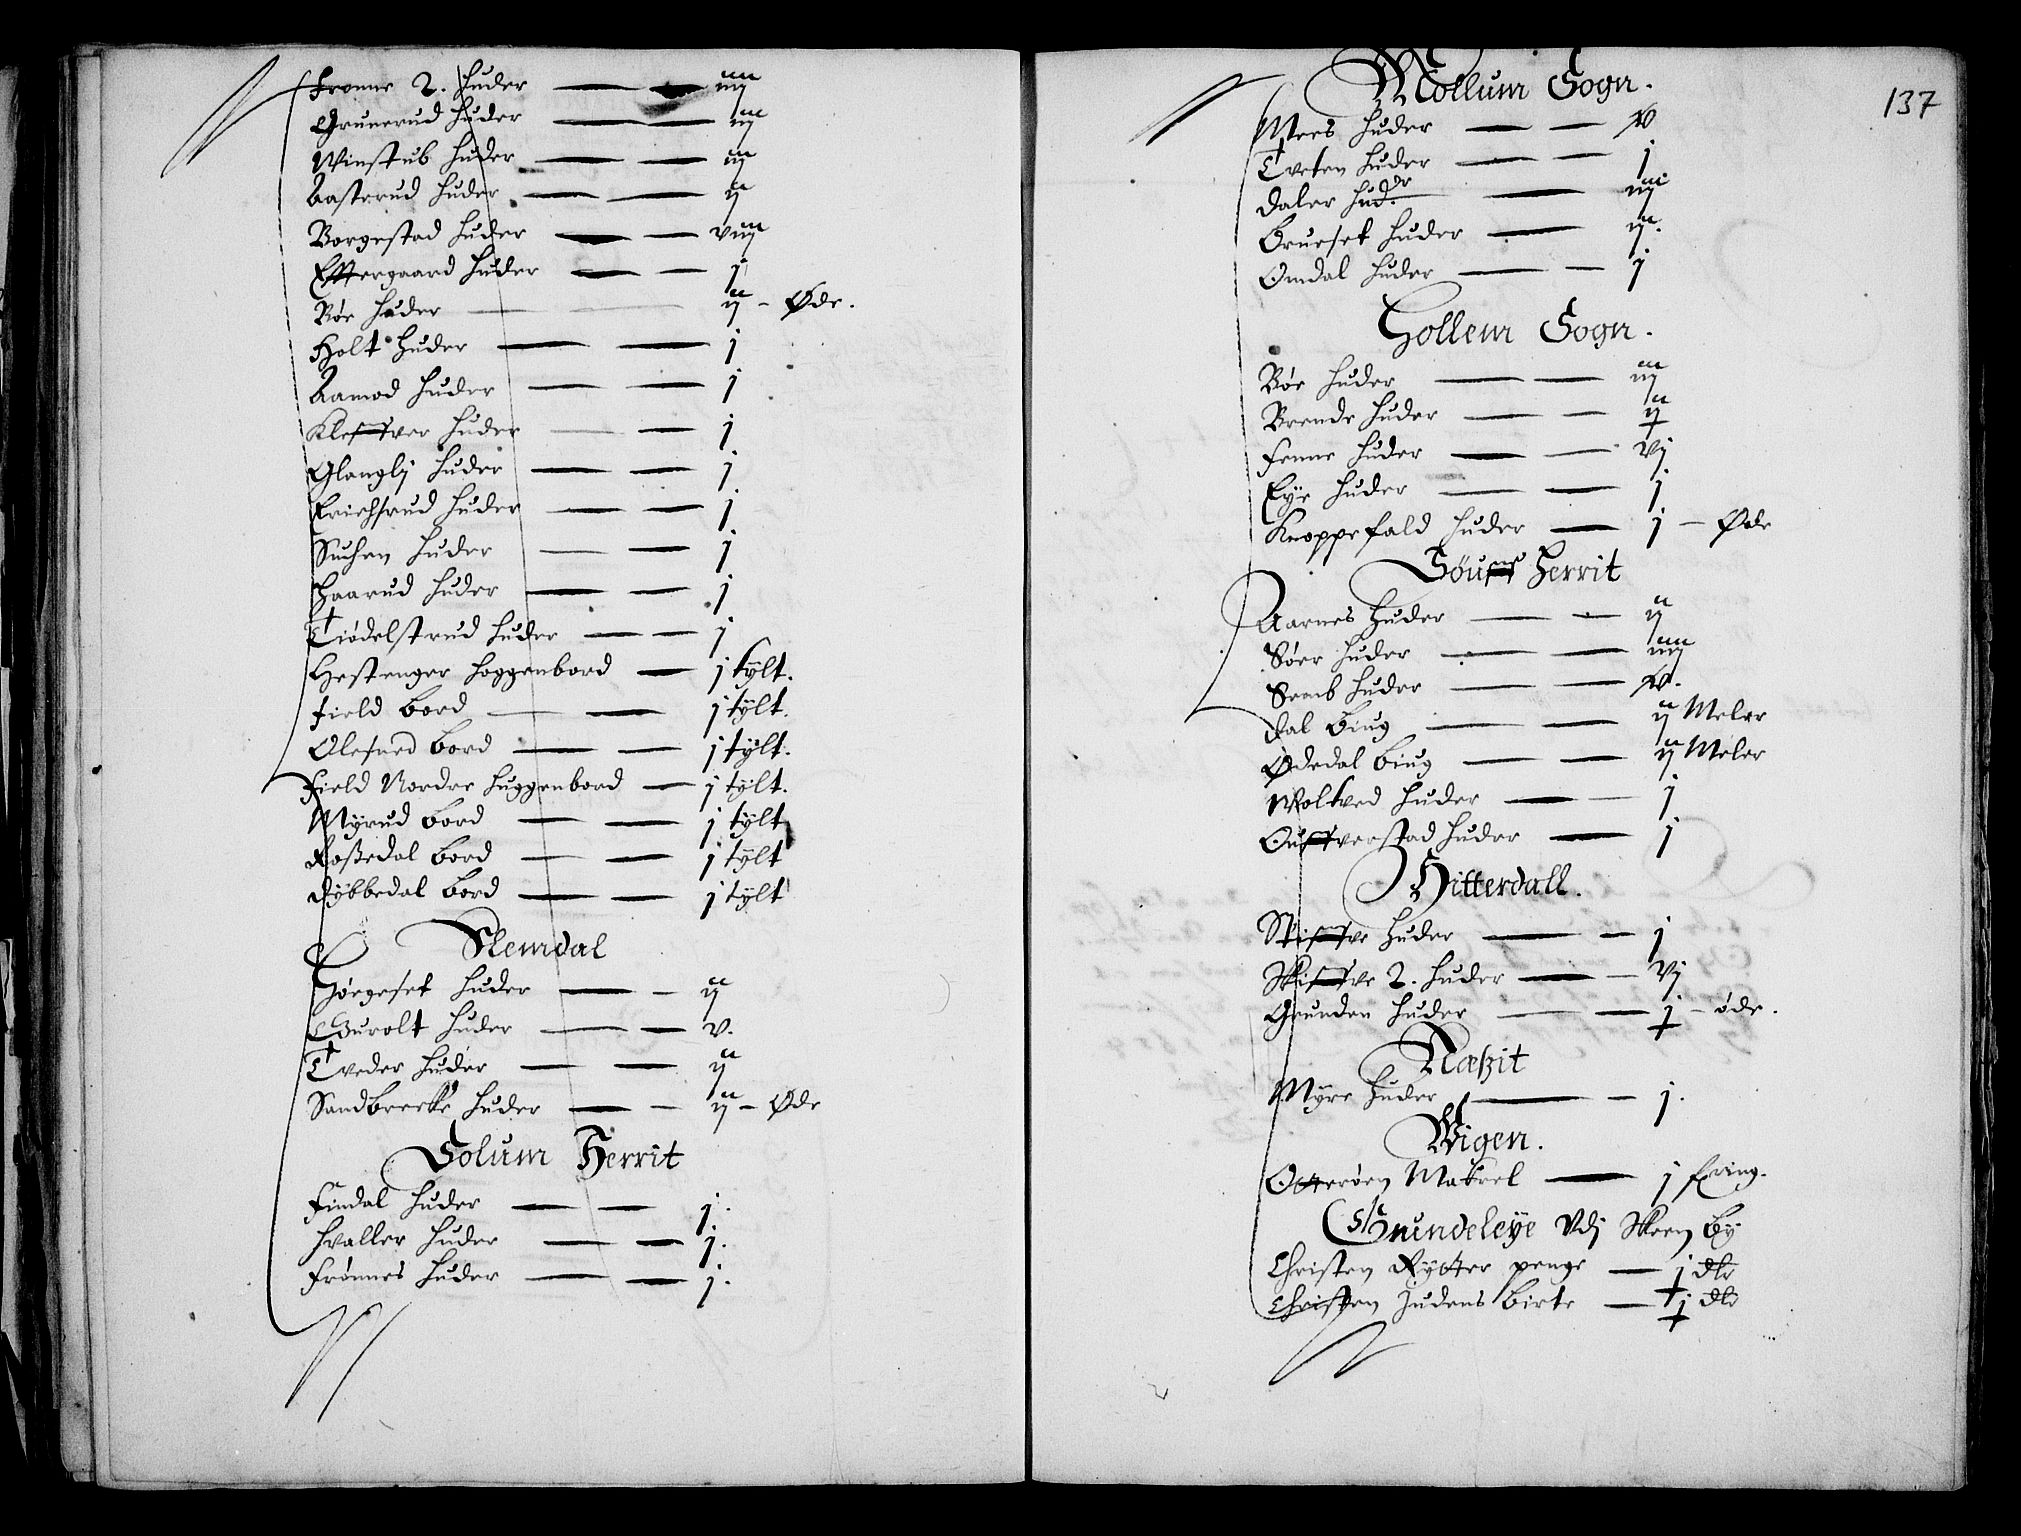 Fromme 2. huder — iiij
Grunerud huder — iij
Winstub huder — iij
Aasterud huder — ij
Borgestad huder — viij
Efftergaard huder — j
Bøe huder — ij – Øde.
Holt huder — j
Aamod huder — j
Klefftver huder — j
Glanglj huder — j
Erichsrud huder — j
Suchen huder — j
Haarud huder — j
Tiødelstrud huder — j
Hestenger hoggenbord — j tylt.
Field bord — j tÿlt.
Olesned bord — j tÿlt.
Field Nordre huggenbord — j tÿlt.
Mÿrud bord — j tÿlt
Roßedal bord — j tÿlt
Dÿbbedal bord — j tÿlt
Slemdal
Hørgeset huder — ij
Gurolt huder — v.
Tveder huder — ij
Sandbrecke huder — ij – Øde
Solum Herrit
Findal huder — j.
Hvaller huder — j.
Frønnes huder — j.
137
Mollum Sogn.
Mees huder — v
Tveten huder — j
Daler hud.r — iij
Brueset huder — ij.
Omdal huder — j
Hollem Sogn.
Bøe huder — iij
Brende huder — ij
Fenne huder — vj
Eÿe huder — j
Knoppefald huder — j – Øde
Søuffs Herrit
Aarnes huder — ij
Søer huder — iiij
Semb huder — v.
Dal biug — ij Meler
Ødedal biug — ij Meler
Woltved huder — j
Oufftverstad huder — j
Hitterdall.
Skifftve huder — j
Skifftve 2. huder — vj
Grunden huder — j – øde.
Næßit
Myre huder — j.
Wigen.
Otterøen Makrel — j fering.
Grundeleÿe Vdj Skeen bÿ
Christen Rÿtter penge — j dlr
Christen Judens birte — j dlr